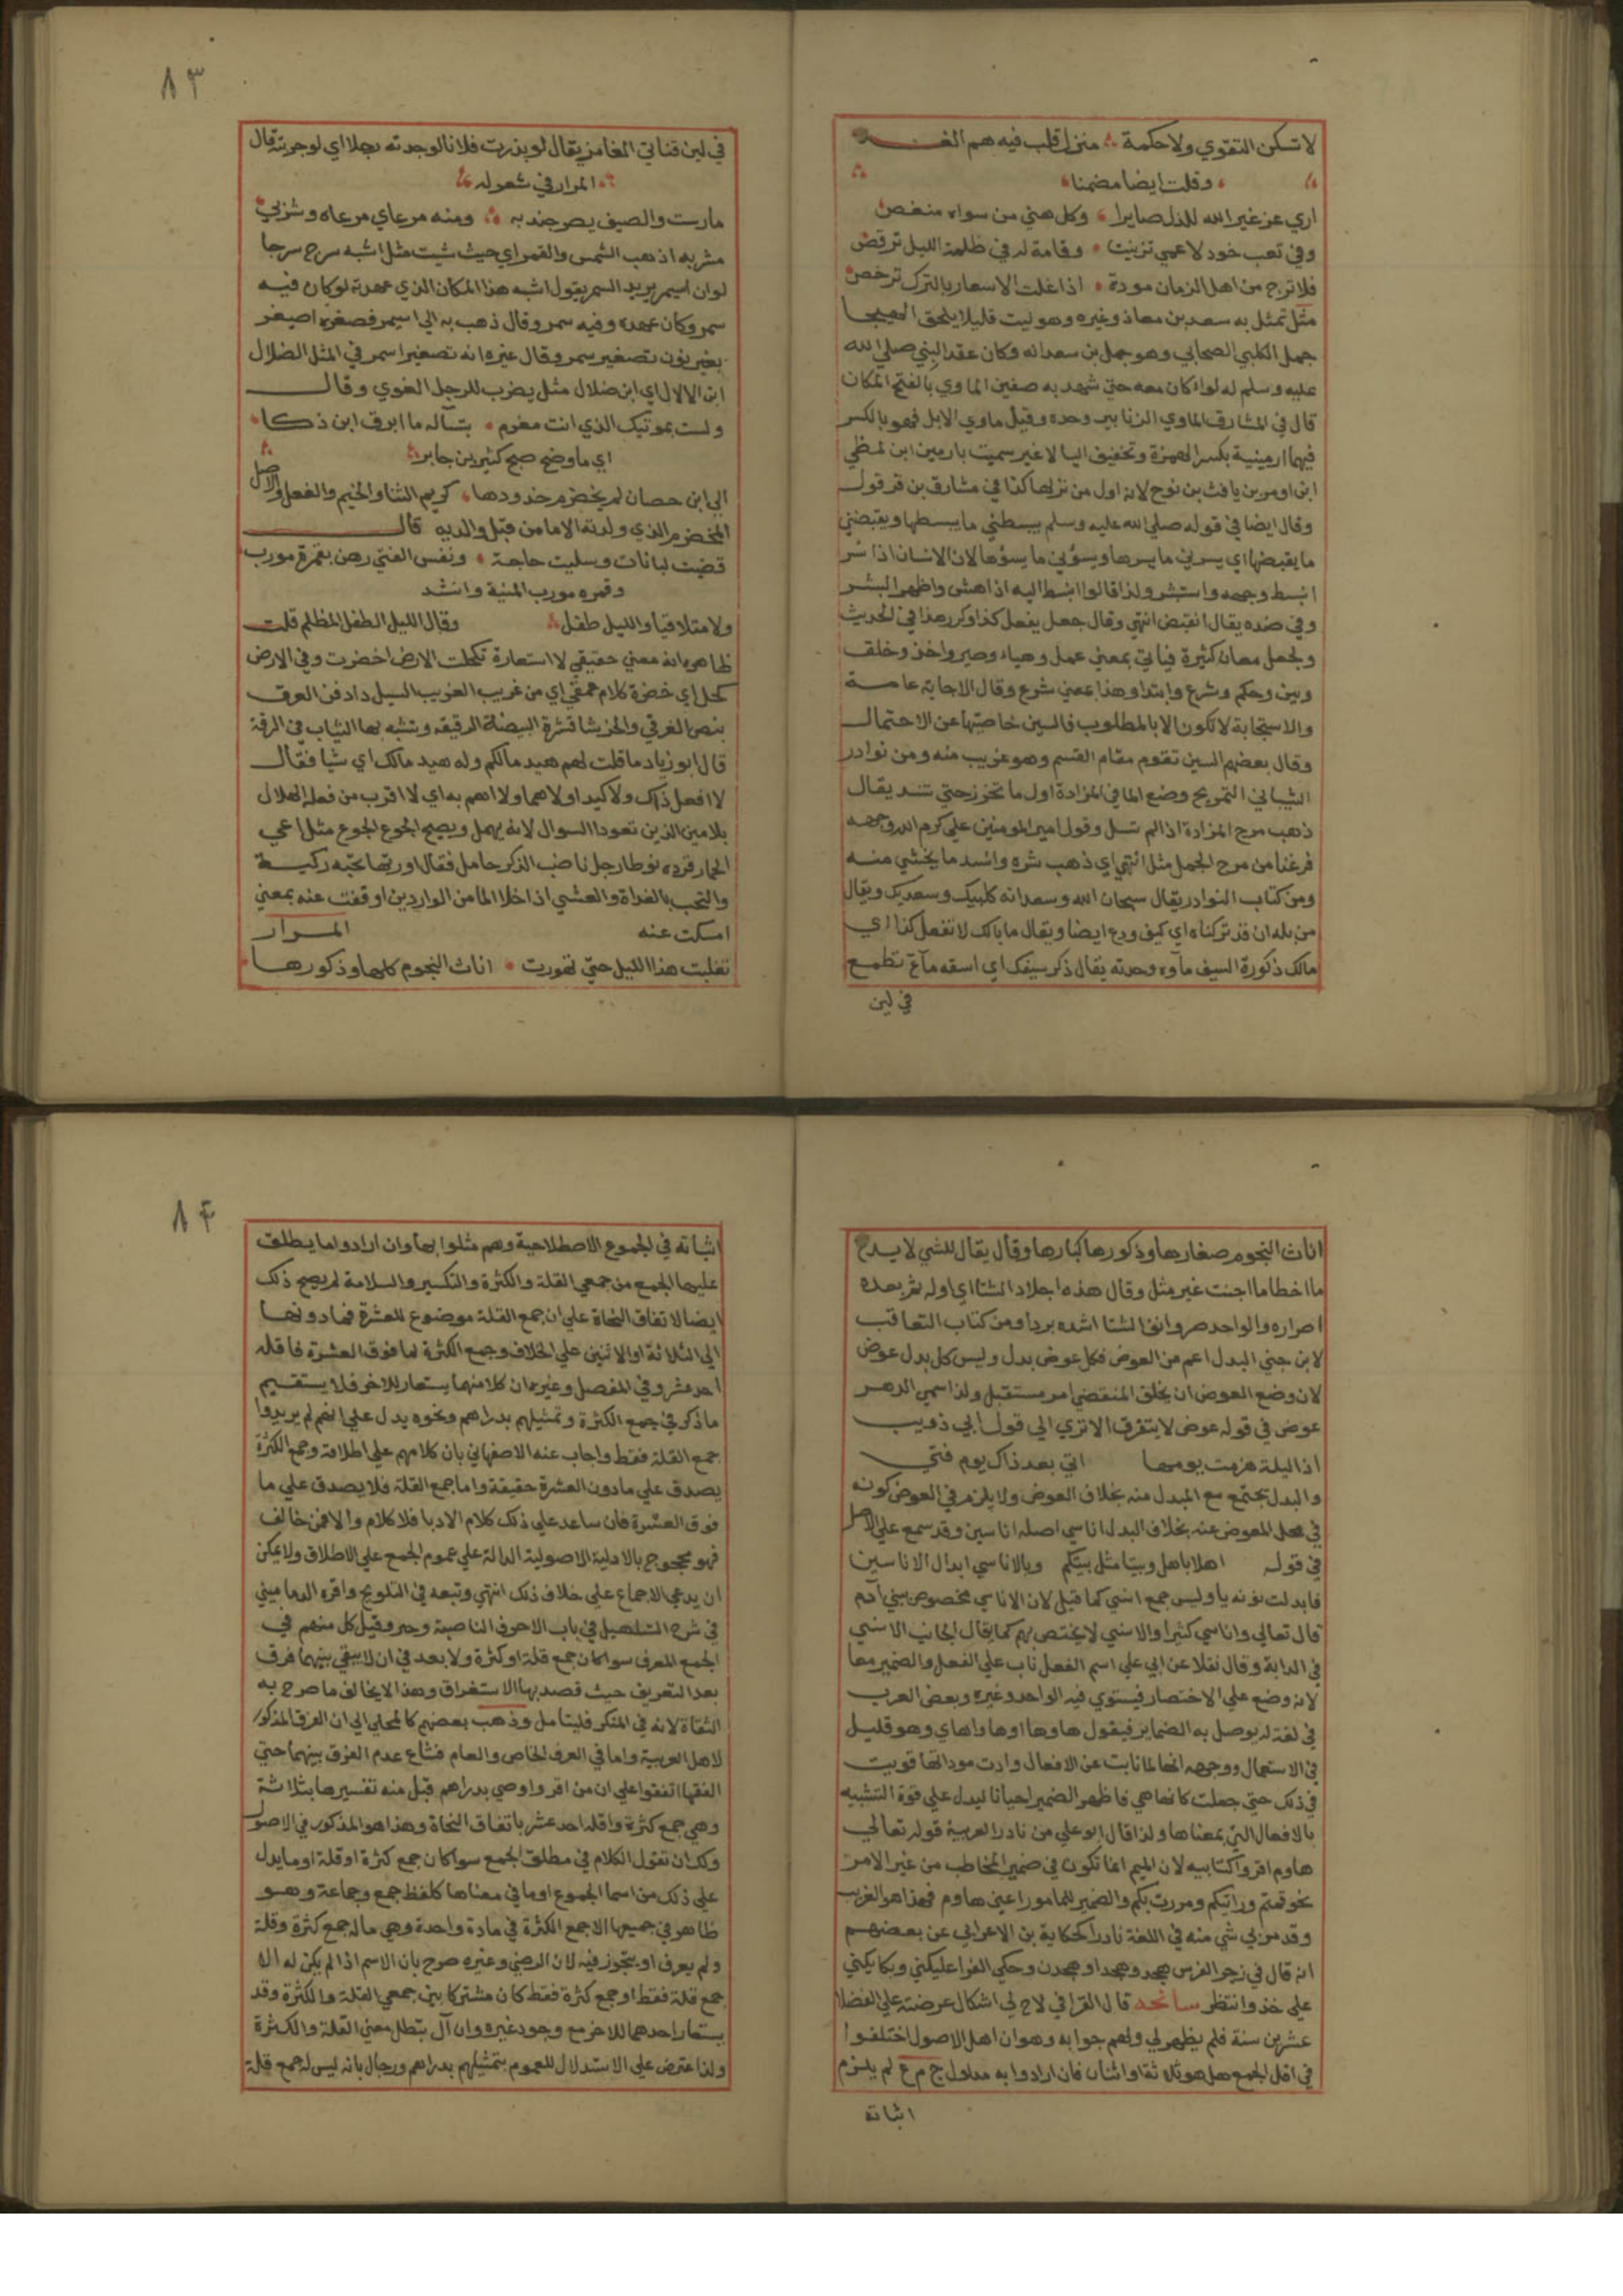 لا تسكن التقوي ولا حكمة ؞ منزل قلب فيه هم الغد
وقلت ايضا مضمنا
اري عز غير الله للذل صايرا ؞ وكل هني من سواه منغص
وفي تعب خود لاعمي تزينت ؞ وقامة له في ظلمة الليل ترقص
فلا ترج من اهل الزمان مودة ؞ اذا غلت الاسعار بالترك ترخص
مثل تمثل به سعد بن معاذ وغيره وهو ليت قليلا يلحق الهيجا
جمل الكلبي الصحابي وهو جمل بن سعدانه وكان عقد النبي صلي الله
عليه وسلم له لواء كان معه حتي شهد به صفين الماوي بالفتح المكان
قال في المشارق الماوي الزنابير وحده وقيل ماوي الابل فهو بالكسر
فيها ارمينية بكسر الهمزة وتخفيف اليا لا غير سميت بارمين ابن لمظي
ابن اومر بن يافث بن نوح لانه اول من نزلها كذا في مشارق بن قرقول
وقال ايضا في قوله صلي الله عليه وسلم يبسطني ما يبسطها ويقبضني
ما يقبضها اي يسرني ما يسرها ويسؤني ما يسؤها لان الانسان اذا سر
انبسط وجهه واستبشر ولذا قالوا انبسط اليه اذا هش واظهر البشر
وفي ضده يقال انقبض انتهي وقال جعل يفعل كذا وكرر هذا في الحديث
ولجعل معان كثيرة فياتي بمعني عمل وهياء وصير واخذ وخلق
وبين وحكم وشرع وابتدا وهذا بمعني شرع وقال الاجابة عامة
والاستجابة لا تكون الا بالمطلوب فالسين خاصتها عن الاحتمال
وقال بعضهم السين تقوم مقام القسم وهو غريب منه ومن نوادر
الشيباني التمريح وضع الما في المزادة اول ما تخرز حتي تشد يقال
ذهب مرح المزادة اذا لم تسل وقول امير المومنين علي كرم الله وجهه
فرغنا من مرح الجمل مثل انتهي اي ذهب شره واشد ما يخشي منه
ومن كتاب النوادر يقال سبحان الله وسعدانه كلبيك وسعديك ويقال
من بله ان قد تركناه اي كيف ودع ايضا ويقال ما بالك لا تفعل كذا اي
مالك ذكورة السيف ماوه وحدته يقال ذكر سيفك اي اسقه ماء تطمع
في لين
٨٣
في لين قناتي المغامز يقال لو بذرت فلانا لوجدته رجلا اي لو جربته قال
المرار في شعر له
مارست والصيف يصر جندبه ؞ ومنه مرعاي مرعاه وشربي
مشربه اذهب الشمس والقمر اي حيث شيت مثل اشبه سرح سرحا
لو ان اسيمر يريد السمر يقول اشبه هذا المكان الذي عهدته لو كان فيه
سمر وكان عهده وفيه سمر وقال ذهب به الي اسيمر فصغره اصيغر
بغير نون تصغير سمر وقال غيره انه تصغير اسمر في المثل الضلال
ابن الالال اي ابن ضلال مثل يضرب للرجل الغوي وقال
ولست بموتيك الذي انت مغرم ؞ بتساله ما ابرق ابن ذكا
اي ما وضح صبح كثير بن جابر
الي ابن حصان لم يخضرم خدودها ؞ كريم الثنا والخيم والفعل والاصل
المخضرم الذي ولدته الاما من قبل والديه قال
قضيت لبانات وسليت حاجة ؞ ونفس الفتي رهن بقمرة مورب
وقمره مورب المنية وانشد
ولا متلافيا والليل طفل وقال الليل الطفل المظلم قلت
ظاهره انه معني حقيقي لا استعارة تكحلت الارض اخضرت وفي الارض
كحل اي خضرة كلام عمقي اي من غريب الغريب السيل دادفن العرق
بنص الغرقي والخرشا قشرة البيضة الرقيقه وتشبه بها الثياب في الرقة
قال ابو زياد ما قلت لهم هيد مالكم وله هيد مالك اي شيا فقال
لا افعل ذاك ولا كيدا ولا هما ولا اهم به اي لا اقرب من فعله الهلال
بلامين الذين تعودا السوال لانه يهمل ويصيح الجوع الجوع مثل اعي
الحمار فرده نوطا رجل ناضب الذكر حامل فقال اوربها تحبه ركيسة
والتحب بالغداة والعشي اذا خلا الما من الواردين اوقفت عنه بمعني
امسكت عنه المرار
تغلبت هذا الليل حتي تهورت ؞ اناث النجوم كلها وذكورها
اناث النجوم صغارها وذكورها كبارها وقال يقال للشي لا يدع
ما اخطا ما اجنت غير مثل وقال هذه اجلاد الشتا اي اوله ثم بعده
اصراره والواحد صر وانف الشتا اشده بردا ومن كتاب التعاقب
لابن جني البدل اعم من العوض فكل عوض بدل وليس كل بدل عوض
لان وضع العوض ان يخلف المنقضي امر مستقبل ولذا سمي الدهر
عوض في قوله عوض لا يتفرق الا تري الي قول ابي ذويب
اذا ليلة هزمت يومها اتي بعد ذاك يوم فتي
والبدل يجتمع مع المبدل منه بخلاف العوض ولا يلزم في العوض كونه
في محل المعوض عنه بخلاف البدل اناسي اصله اناسين وقد سمع علي الاصل
في قوله اهلا باهل وبيتا مثل بيتكم وبالاناسي ابدال الاناسين
فابدلت نونه يا وليس جمع انسي كما قيل لان الاناسي مخصوص ببني آدم
قال تعالي واناسي كثيرا والانسي لا يختص بهم كما يقال الجانب الانسي
في الدابة وقال نقلا عن ابي علي اسم الفعل ناب علي الفعل والضمير معا
لانه وضع علي الاختصار فيستوي فيه الواحد وغيره وبعض العرب
في لغة له يوصل به الضماير فيقول هاوها اوها واهاي وهو قليل
في الاستعمال ووجهه انها لما نابت عن الافعال وادت موداتها قويت
في ذلك حتي جعلت كانها هي فاظهر الضمير احيانا ليدل علي قوة التشبيه
بالافعال التي بمعناها ولذا قال ابو علي من نادر العربية قوله تعالي
هاوم اقروا كتابيه لان الميم انما تكون في ضمير المخاطب من غير الامر
نحو قمتم ورايتكم ومررت بكم والضمير للمامور اعني هاوم فهذا هو الغريب
وقد مر بي شي منه في اللغة نادرا كحكاية بن الاعرابي عن بعضهم
انه قال في زجر الفرس هجد وهجدا وهجدن وحكي الفرا عليكني وبكا يكني
علي خذ وانتظر سانحه قال القرافي لاح لي اشكال عرضته علي الفضلا
عشرين سنة فلم يظهر لي ولهم جوابه وهو ان اهل الاصول اختلفوا
في اقل الجمع هل هو ثلاثة او اثنان فان ارادوا به مدلول ج م ع لم يلزم
اثباته
٨٤
اثباته في الجموع الاصطلاحية وهم مثلوا بها وان ارادوا ما يطلق
عليها الجمع من جمعي القلة والكثرة والتكسير والسلامة لم يصح ذلك
ايضا لاتفاق النحاة علي ان جمع القلة موضوع للعشرة فما دونها
الي الثلاثة او الاثنين علي الخلاف وجمع الكثرة لما فوق العشرة فاقله
احد عشر وفي المفصل وغيره ان كلا منهما يستعار للاخر فلا يستقيم
ما ذكر في جمع الكثرة وتمثيلهم بدراهم ونحوه يدل علي انهم لم يريدوا
جمع القلة فقط واجاب عنه الاصفهاني بان كلامهم علي اطلاقه وجمع الكثرة
يصدق علي ما دون العشرة حقيقة واما جمع القلة فلا يصدق علي ما
فوق العشرة فان ساعد علي ذلك كلام الادبا فلا كلام والا فمن خالف
فهو محجوج بالادلية الاصولية الدالة علي عموم الجمع علي الاطلاق ولا يمكن
ان يدعي الاجماع علي خلاف ذلك انتهي وتبعه في التلويح واقره الدماميني
في شرح التسهيل في باب الاحرف الناصبة وجر وقيل كل منهم في
الجمع المعرف سوا كان جمع قلة او كثرة ولا بعد في ان لا يبقي بينهما فرق
بعد التعريف حيث قصد بها الاستغراق وهذا لا يخالف ما صرح به
الثقاة لانه في المنكر فليتامل وذهب بعضهم كالمحلي الي ان الفرق المذكور
لاهل العربية واما في العرف الخاص والعام فشاع عدم الفرق بينهما حتي
الفقها اتفقوا علي ان من اقر او اوصي بدراهم قبل منه تفسيرها بثلاثة
وهي جمع كثرة واقله احد عشر باتفاق النحاة وهذا هو المذكور في الاصول
ولك ان تقول الكلام في مطلق الجمع سوا كان جمع كثرة او قلة او ما يدل
علي ذلك من اسما الجموع او ما في معناها كلفظ جمع وجماعة وهو
ظاهر في جميعها الا جمع الكثرة في مادة واحدة وهي ماله جمع كثرة وقلة
ولم يعرف او يتجوز فيه لان الرضي وغيره صرح بان الاسم اذا لم يكن له الا
جمع قلة فقط او جمع كثرة فقط كان مشتركا بين جمعي القلة والكثرة وقد
يستعار احدهما للاخر مع وجود غيره وان آل تبطل معني القلة والكثرة
ولذا اعترض علي الاستدلال للعموم بتمثيلهم بدراهم ورجال بانه ليس له جمع قلة